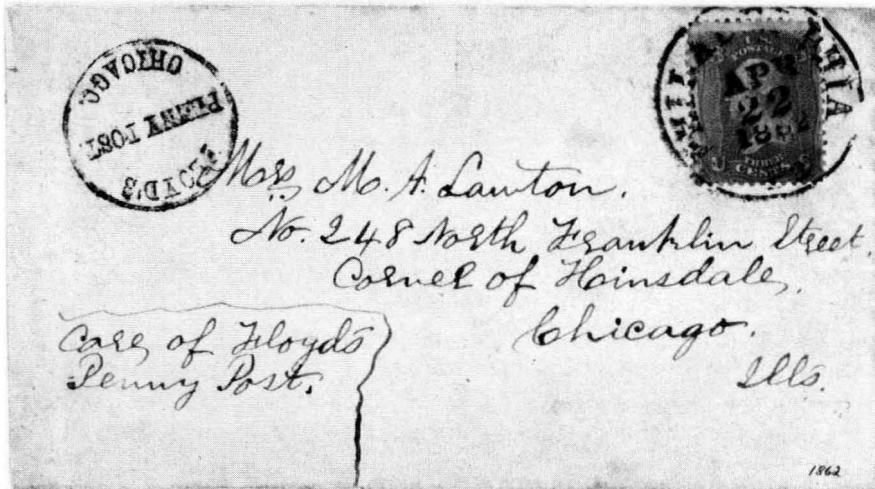 FLOYD'S
PENNY POST
CHICAGO.
U.S.
POSTAGE
APR
22
1862
THREE
CENTS
Mrs. M. A. Lawton.
No. 248 North Franklin Street.
Corner of Hinsdale,
Chicago.
Ills.
Care of Floyds
Penny Post.
1862